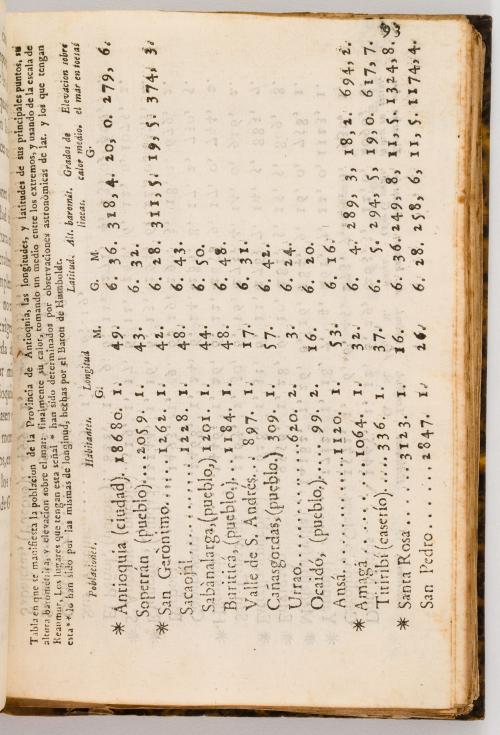 Tabla en que se manifiesta la poblacion de la Provincia de Antioquia, las longitudes, y latitudes de sus principales puntos, su
altura barométrica, y elevacion sobre el mar: finalmente su calor, tomando un medio entre los extremos, y usando de la escala de
Reaumur. Los lugares que tengan esta señal * han sido determinados por observaciones astronómicas de lat. y los que tengan
esta ** lo han sido por las mismas de longitud, hechas por el Baron de Humboldt.
Poblaciones. Habitantes. Longitud Latitud. Alt. baromét. Grados de Elevacion sobre
lineas. calor medio. el mar en toesas
G. M. G. M. G.
* Antioquia (ciudad). 18680. 1. 49. 6. 36. 318, 4. 20, 0. 279, 6.
Sopetrán (pueblo)....2059. 1. 43. 6. 32.
* San Gerónimo....... 1262. 1. 42. 6. 28. 311, 5. 19, 5. 374, 3.
Sacaojal............ 1228. 1. 48. 6. 43.
Sabanalarga, (pueblo,) 1201. 1. 44. 6. 50.
Buriticá, (pueblo.)... 1184. 1. 48. 6. 48.
Valle de S. Andrés... 897. 1. 17. 6. 31.
Cañasgordas, (pueblo.) 309. 1. 57. 6. 42.
Urrao............... 620. 2. 3. 6. 24.
Ocaidó, (pueblo,)..... 99. 2. 16. 6. 20.
Ansá...............1120. 1. 53. 6. 16.
* Amagá.............1064. 1. 32. 6. 4. 289, 3, 18, 2. 694, 2.
Titiribí (caserío)..... 336. 1. 37. 6. 5. 294, 5, 19, 0. 617, 7.
* Santa Rosa........ 3123. 1. 16. 6. 36. 249, 8, 11, 5. 1324, 8.
San Pedro......... 2847. 1. 26. 6. 28. 258, 6, 11, 5. 1174, 4.